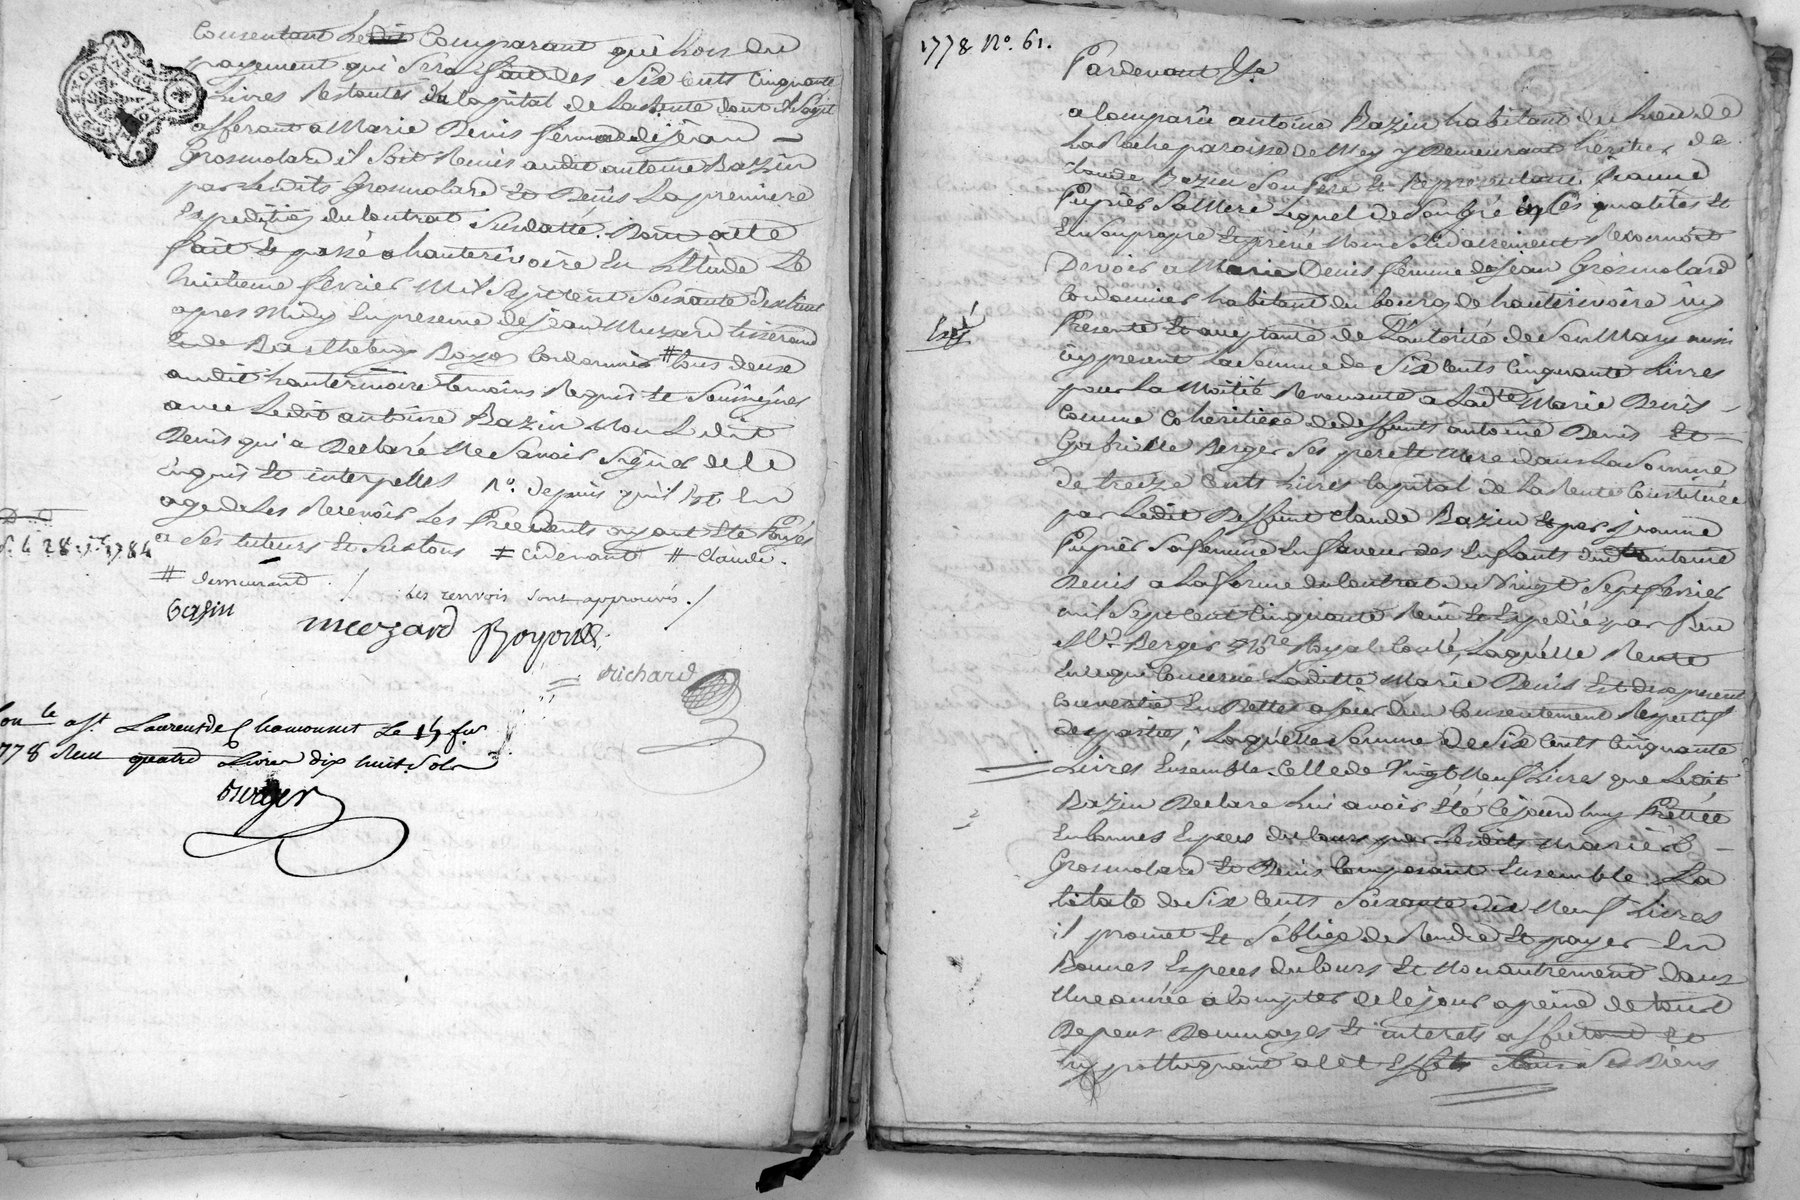 Consentant ledit Comparant que lors du
payement qui sera fait des Six Cents Cinquante
Livres Restantes du Capital de La Rente dont il s'agit
afferant a Marie Denis femme de jean
Grosmolard il soit Remis audit antoine Bazin
par Lesdits Grosmolard et Denis La premiere
Expedition du Contrat Susdatté. Dont acte
fait et passé a hauterivoire en L'Etude Le
huitieme fevrier Mil Sept Cent Soixante dix huit
apres Midy En presence de jean Muzard tisserand
et de Barthelemy Boyou Cordonnier # tous deux
audit hauterivoire temoins Requis et Soussignés
avec Ledit antoine Bazin Non Ledit
Denis qui a Declaré Ne Savoir Signer de ce
Enquis et interpellés depuis qu'il Est En
age de Les Recevoir Les Precedents ayant Eté Payés
a Ses tuteurs et # Cidevant # Claude.
# demeurant . / des renvois sont approuvés. /
basin muzard Boyou
Richard
Con.lé a St Laurent de Chamousset Le 14 fer
778 Reçu quatre Livres dix huit Sols
Burger
28 1784
GEN DE LYON
1778 No. 61.
Pardevant &a
a Comparû antoine Bazin habitant du Lieu de
La Roche paroisse de Mey y Demeurant heritier de
Claude Bazin Son Pere et Representant jeanne
Pupier Sa Mere Lequel de Son gré Es Qualités et
En Son propre et privé Nom Solidairement Reconnoit
Devoir a Marie Denis femme de jean Grosmolard
Cordonnier habitant du bourg de hauterivoire icy
Presente et acceptante de L'autorité de Son Mary aussi
icy present La Somme de Six Cents Cinquante Livres
pour La Moitié Revenante a Ladte Marie Denis
Comme Coheritiere de deffunts antoine Denis et
Gabrielle Berger Ses pere et Mere dans La Somme
de treize Cents Livres Capital de La Rente Constituée
par Ledit Deffunt Claude Bazin et par jeanne
Pupier Sa femme En faveur des Enfants dud. antoine
Denis a La forme du Contrat du Vingt Sept fevrier
mil Sept Cent Cinquante Neuf et Expedié par feu
Me. Berger Nre Royal, Laquelle Rente
En ce qui Concerne Laditte Marie Denis Est des a present
Convertie En Dette a jour du Consentement Respectif
des parties; Laquelle Somme de Six Cents Cinquante
Livres Ensemble Celle de Vingt Neuf Livres que Ledit
Bazin Declare Lui avoir Eté Cejourd'huy Pretée
En bonnes Especes du Cours par Lesdits Mariés
Grosmolard et Denis Composant Ensemble La
totale de Six Cents Soixante dix Neuf Livres
il promet et S'oblige de Rendre et payer En
Bonnes Especes du Cours et Non autrement Dans
Une année a Compter de Ce jour a peine de tous
Depens Dommages et interets affectant et
hypothequant a Cet Effet tous Ses Biens